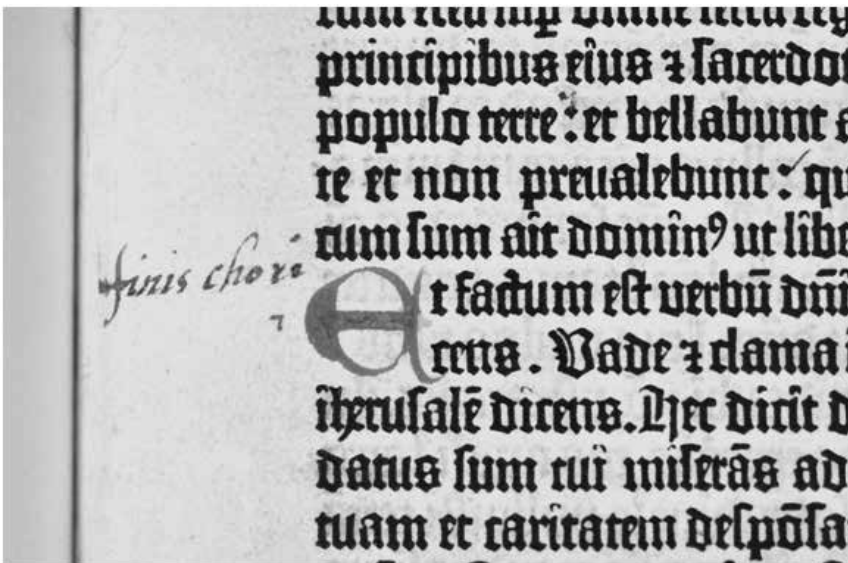 rum ereu sup omne terra reg
principibus eius ⁊ sacerdot
populo terre : et bellabunt a
te et non preualebunt : qu
cum sum ait dominꝰ ut libe
finis chori
Et factum est uerbū dn̄i
cens . Vade ⁊ clama i
iherusalē dicens . Hec dicit d
datus sum tui miserās ad
tuam et caritatem despōsa